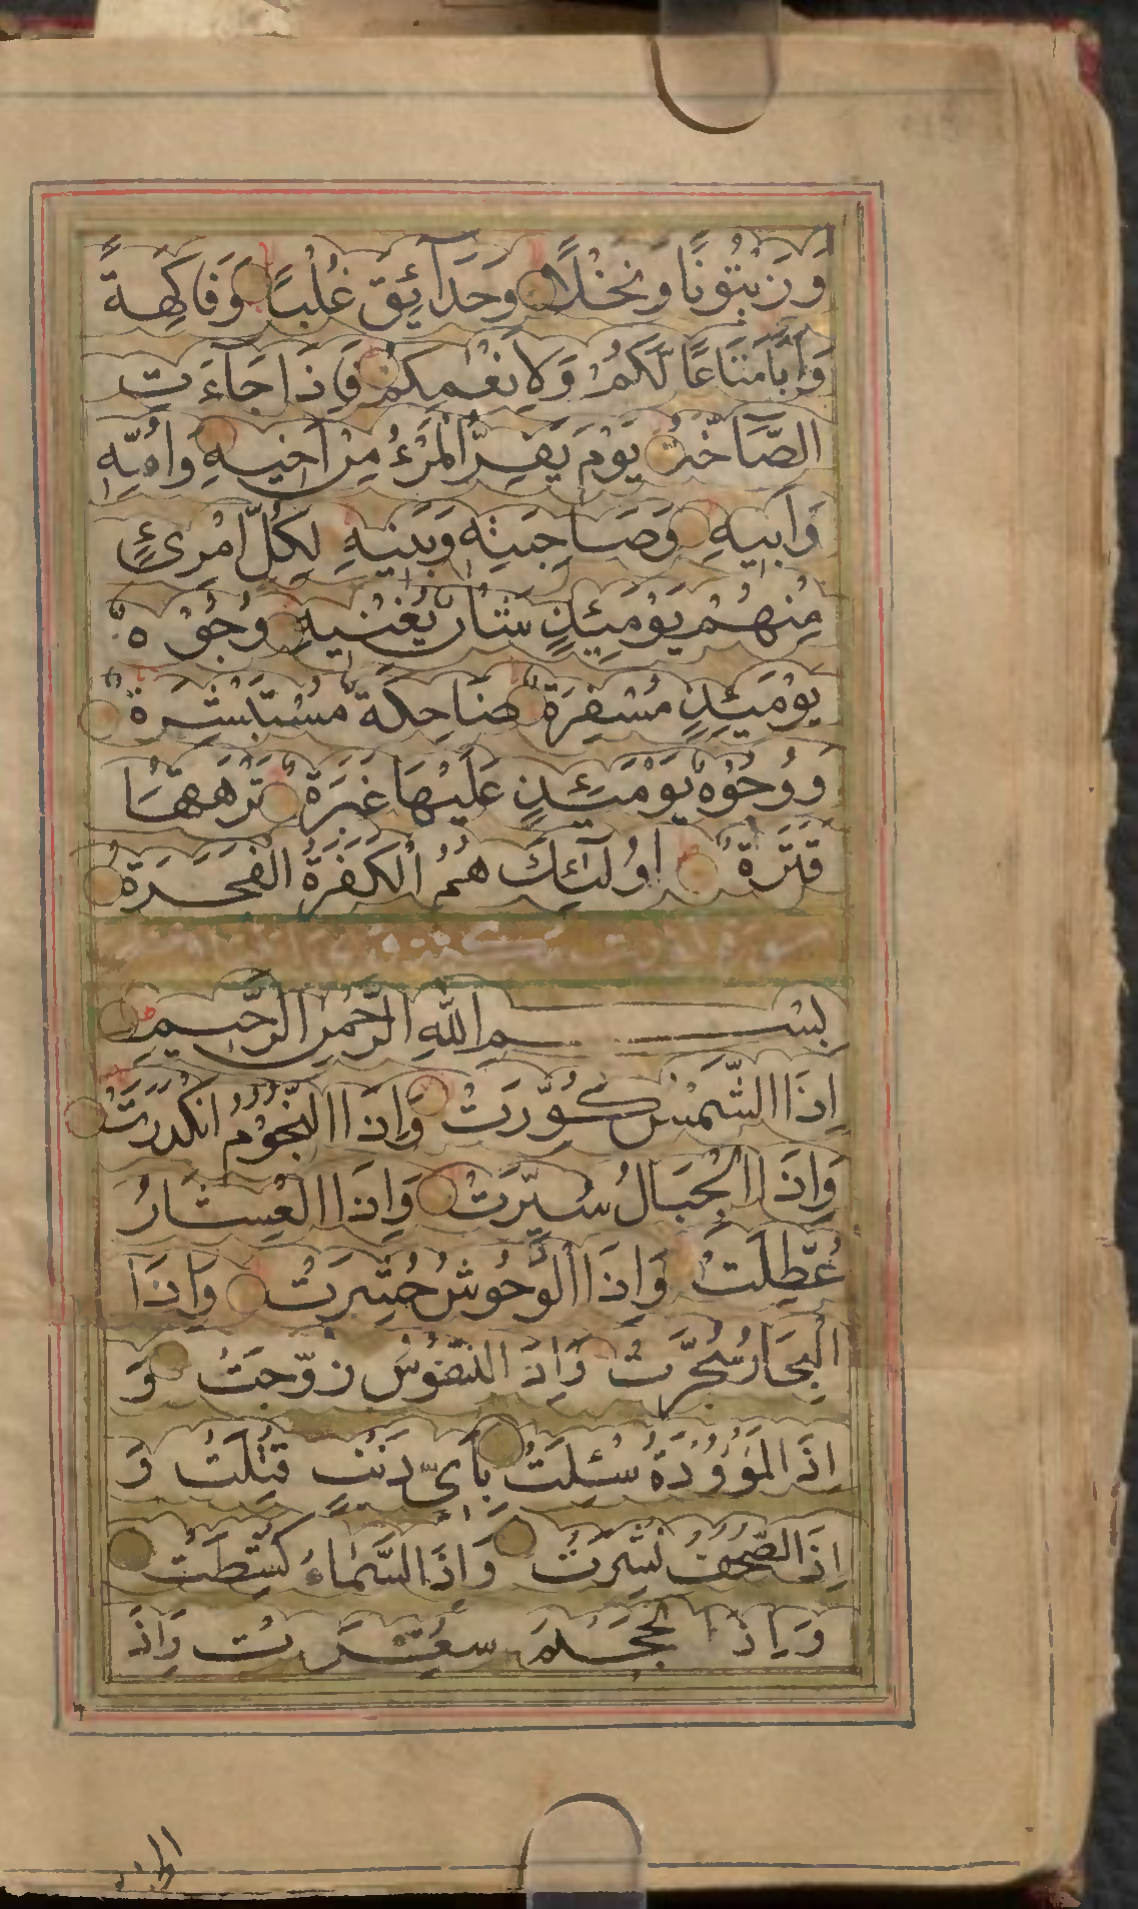 وَزَيْتُونًا وَنَخْلًا وَحَدَآئِقَ غُلْبًا وَفَاكِهَةً
وَأَبًّا مَتَاعًا لَّكُمْ وَلِاَنْعَمِكُمْ فَاِذَا جَآءَتِ
الصَّآخَّةُ يَوْمَ يَفِرُّ الْمَرْءُ مِنْ اَخِيهِ وَاُمِّهِ
وَاَبِيهِ وَصَاحِبَتِهِ وَبَنِيهِ لِكُلِّ امْرِئٍ
مِنْهُمْ يَوْمَئِذٍ شَاْنٌ يُغْنِيهِ وُجُوْهٌ
يَوْمَئِذٍ مُسْفِرَةٌ ضَاحِكَةٌ مُسْتَبْشِرَةٌ
وَوُجُوْهٌ يَوْمَئِذٍ عَلَيْهَا غَبَرَةٌ تَرْهَقُهَا
قَتَرَةٌ اُولَئِكَ هُمُ الْكَفَرَةُ الْفَجَرَةُ
بِسْمِ اللّٰهِ الرَّحْمٰنِ الرَّحِيمِ
اِذَا الشَّمْسُ كُوِّرَتْ وَاِذَا النُّجُوْمُ انْكَدَرَتْ
وَاِذَا الْجِبَالُ سُيِّرَتْ وَاِذَا الْعِشَارُ
عُطِّلَتْ وَاِذَا الْوُحُوشُ حُشِرَتْ وَاِذَا
الْبِحَارُ سُجِّرَتْ وَاِذَا النُّفُوْسُ زُوِّجَتْ وَ
اِذَا الْمَوْؤُدَةُ سُئِلَتْ بِاَيِّ ذَنْبٍ قُتِلَتْ وَ
اِذَا الصُّحُفُ نُشِرَتْ وَاِذَا السَّمَاءُ كُشِطَتْ
وَاِذَا الْجَحِيمُ سُعِّرَتْ وَاِذَا